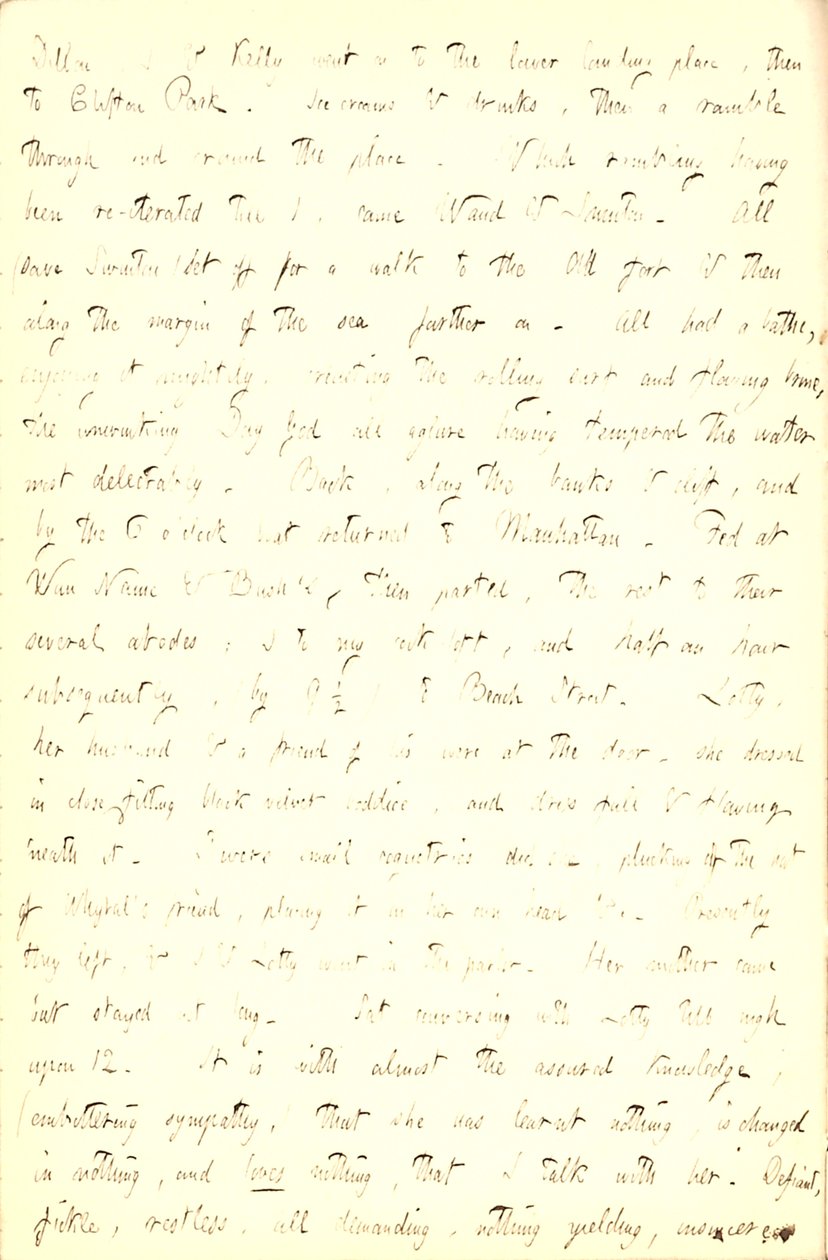 Dillon I & Kelly went on to the lower landing place, then
to Clifton Park. Ice creams & drinks, then a ramble
through and around the place - Which rambling having
been re-iterated came Waud & Swinton - All
(save Swinton) set off for a walk to the Old Fort & then
along the margin of the sea further on - All had a bathe,
enjoying it mightily, the rolling surf and flowing brine,
the unwinking Day God all having tempered the water
most delectably - Back, along the banks & cliff, and
by the 6 o'clock boat returned to Manhattan - Fed at
Van Name & Bush's, then parted, the rest to their
several abodes, I to my loft, and half an hour
subsequently, by 9 ½, to Beach Street. Lotty,
her husband & a friend of his were at the door - she dressed
in close-fitting black velvet boddice, and dress full & flowing
'neath it - small coquetries did she, plucking off the hat
of Whytal's friend, placing it on her own head &c. Presently
they left, & I & Lotty went in the parlor - Her mother came
but stayed not long - Sat conversing with Lotty till nigh
upon 12 - It is with almost the assured knowledge,
(embittering sympathy,) that she has learnt nothing, is changed
in nothing, and loves nothing, that I talk with her. Defiant,
fickle, restless, all demanding, nothing yielding,